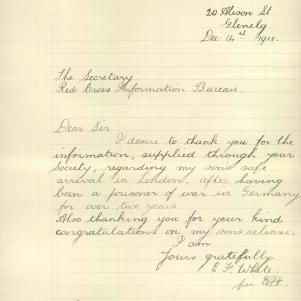 20 Alison St
Glenelg
Dec 14th 1918.
The Secretary
Red Cross Information Bureau.
Dear Sir
I desire to thank you for the
information, supplied through your
Society, regarding my son's safe
arrival in London, after having
been a prisoner of war in Germany
for over two years.
Also thanking you for your kind
congratulations on my son's release.
I am
Yours gratefully
E. F. White.
per